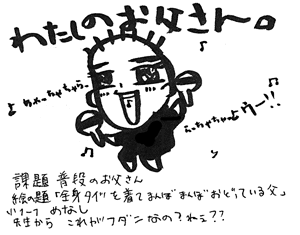 わたしのお父さん。
♪ めちゃっちゃちゃ〜
らっちゃっちゃようー!! ♪
課題 普段のお父さん
絵の題「全身タイツを着てまんぼまんぼおどっている父」
めなし
先生から これがフダンなの?ねぇ??